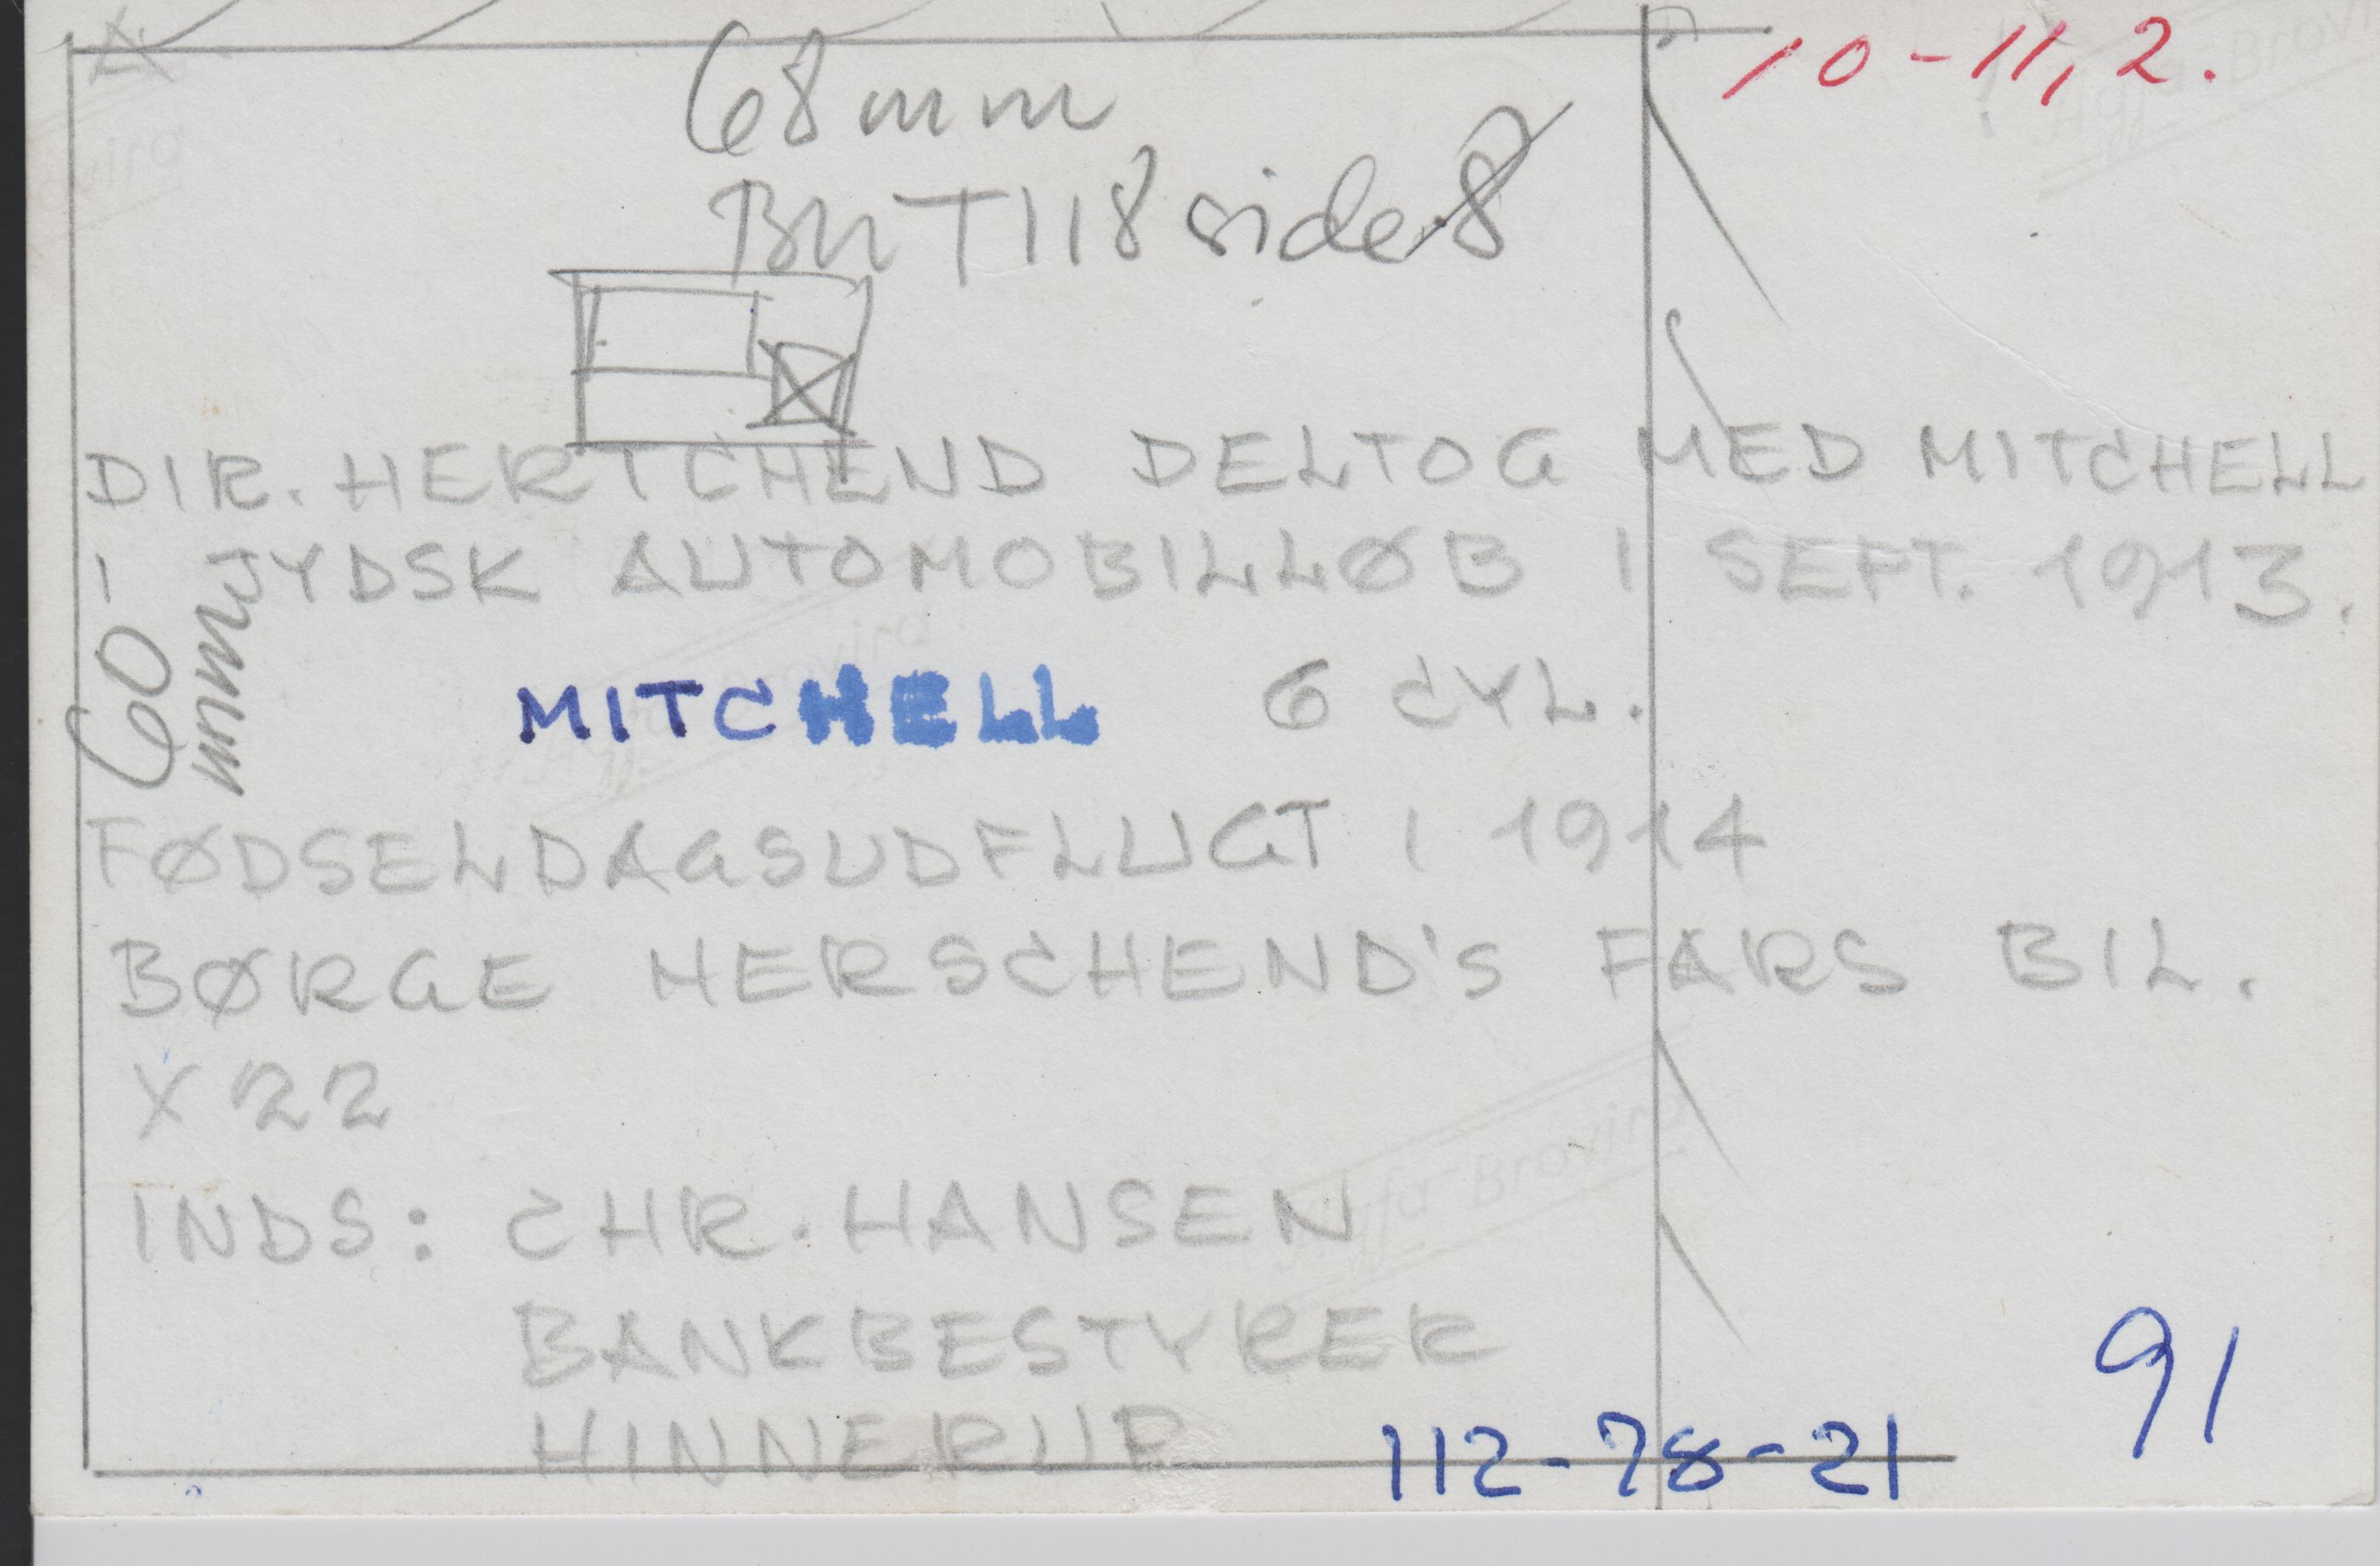 10-11,2.
68mm
T118 side 8
DIR. HERTCHEND DELTOG MED MITCHELL
I JYDSK AUTOMOBILLØB I SEPT. 1913.
60
mm
MITCHELL 6 CYL.
FØDSELDAGSUDFLUGT I 1914
BØRGE HERSCHEND'S FARS BIL.
X 22
INDS: CHR. HANSEN
BANKBESTYRER
HINNERUP
112-78-21
91